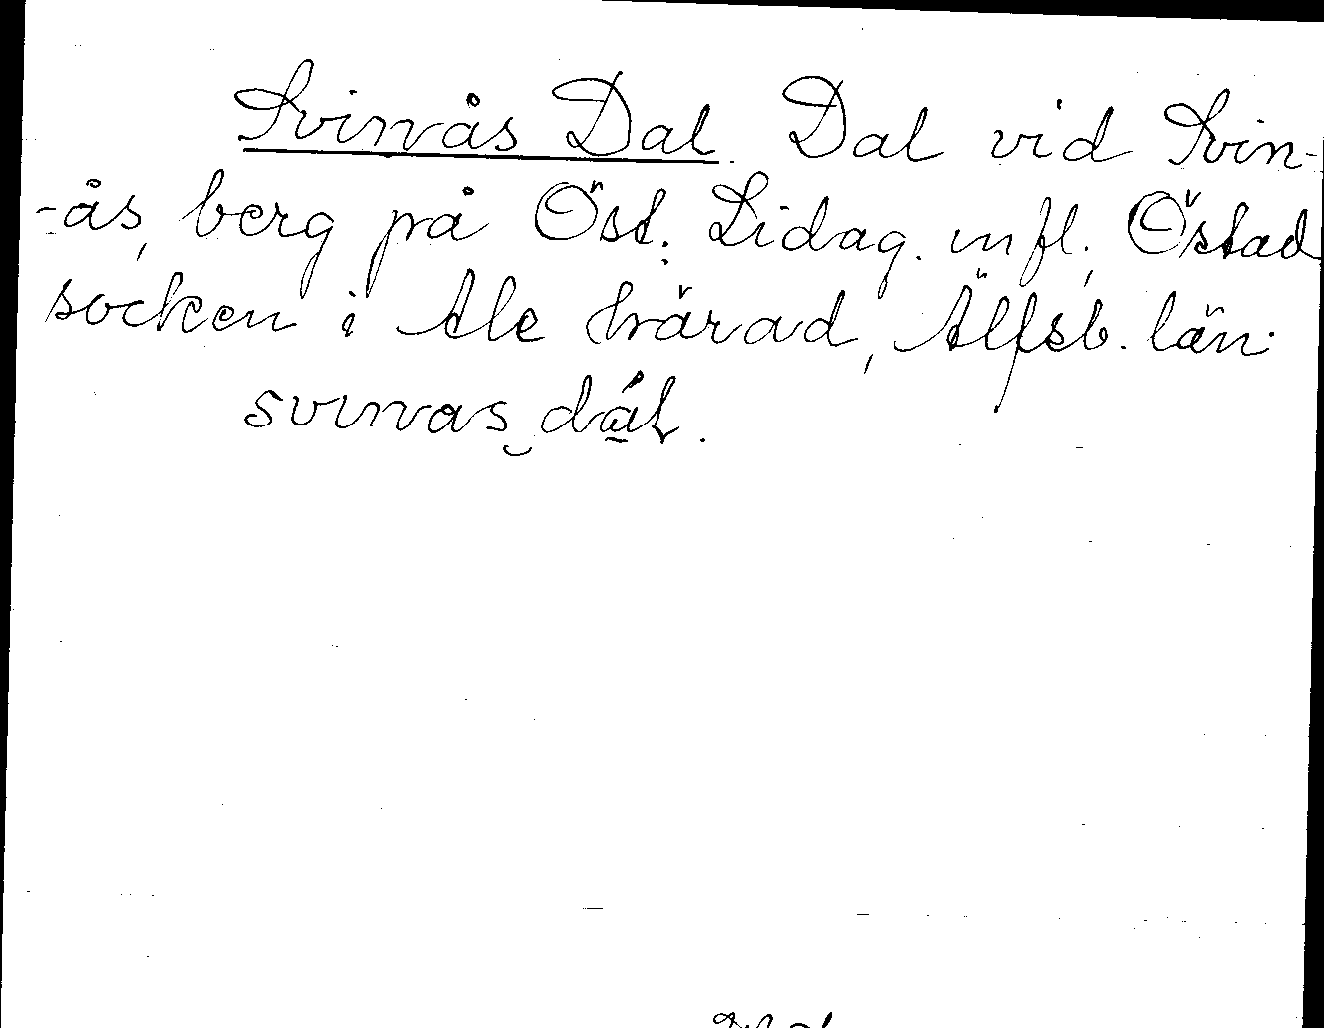 Svinås Dal. Dal vid Svin-
-ås, berg på Öst. Lidag. m fl. Östad
socken i Ale härad, Älfsb. län.
svinas dál.